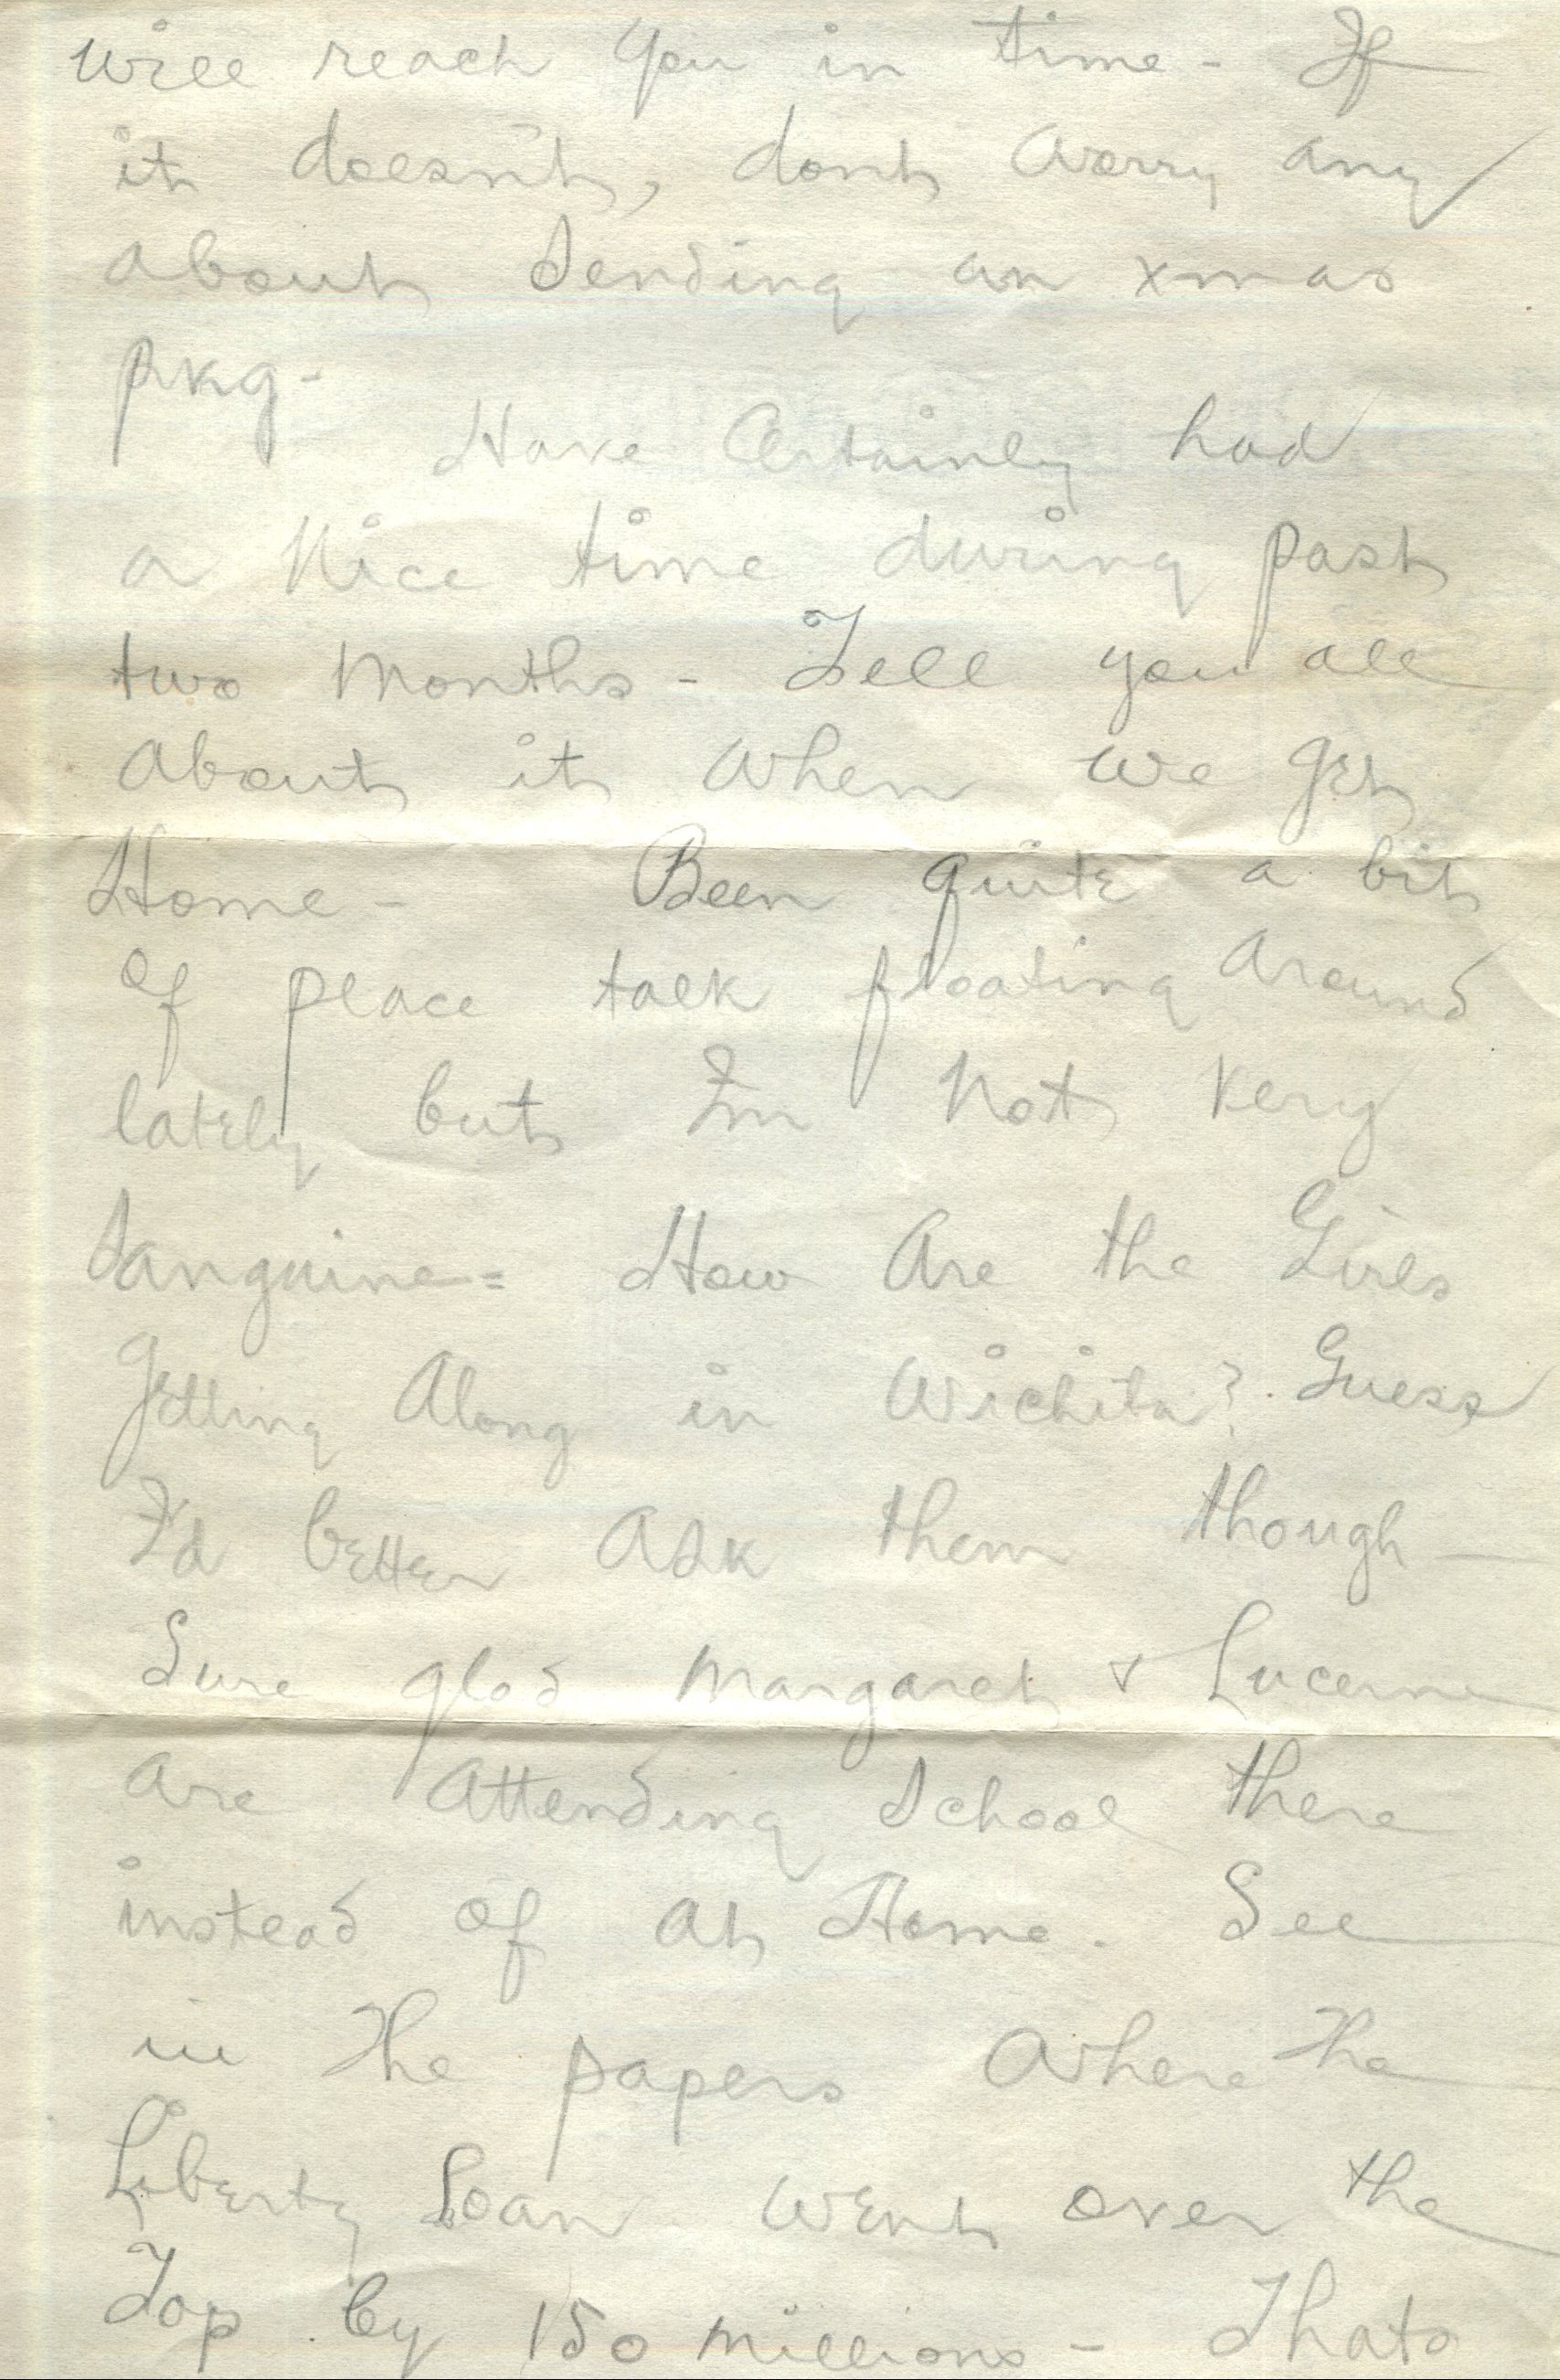 will reach you in time - If
it doesn't, dont worry any
about sending an xmas
pkg -
Have Certainly had
a Nice time during past
two Months - Tell you all
About it When we get
Home - Been quite a bit
of peace talk floating Around
lately but Im Not Very
Sanguine = How Are the Girls
Getting Along in Wichita? Guess
I'd better Ask them though -
Sure glad Margaret & Lucerne
are Attending School there
instead of at Home. See
in The papers Where The
Liberty Loan Went over the
Top by 150 Millions - Thats